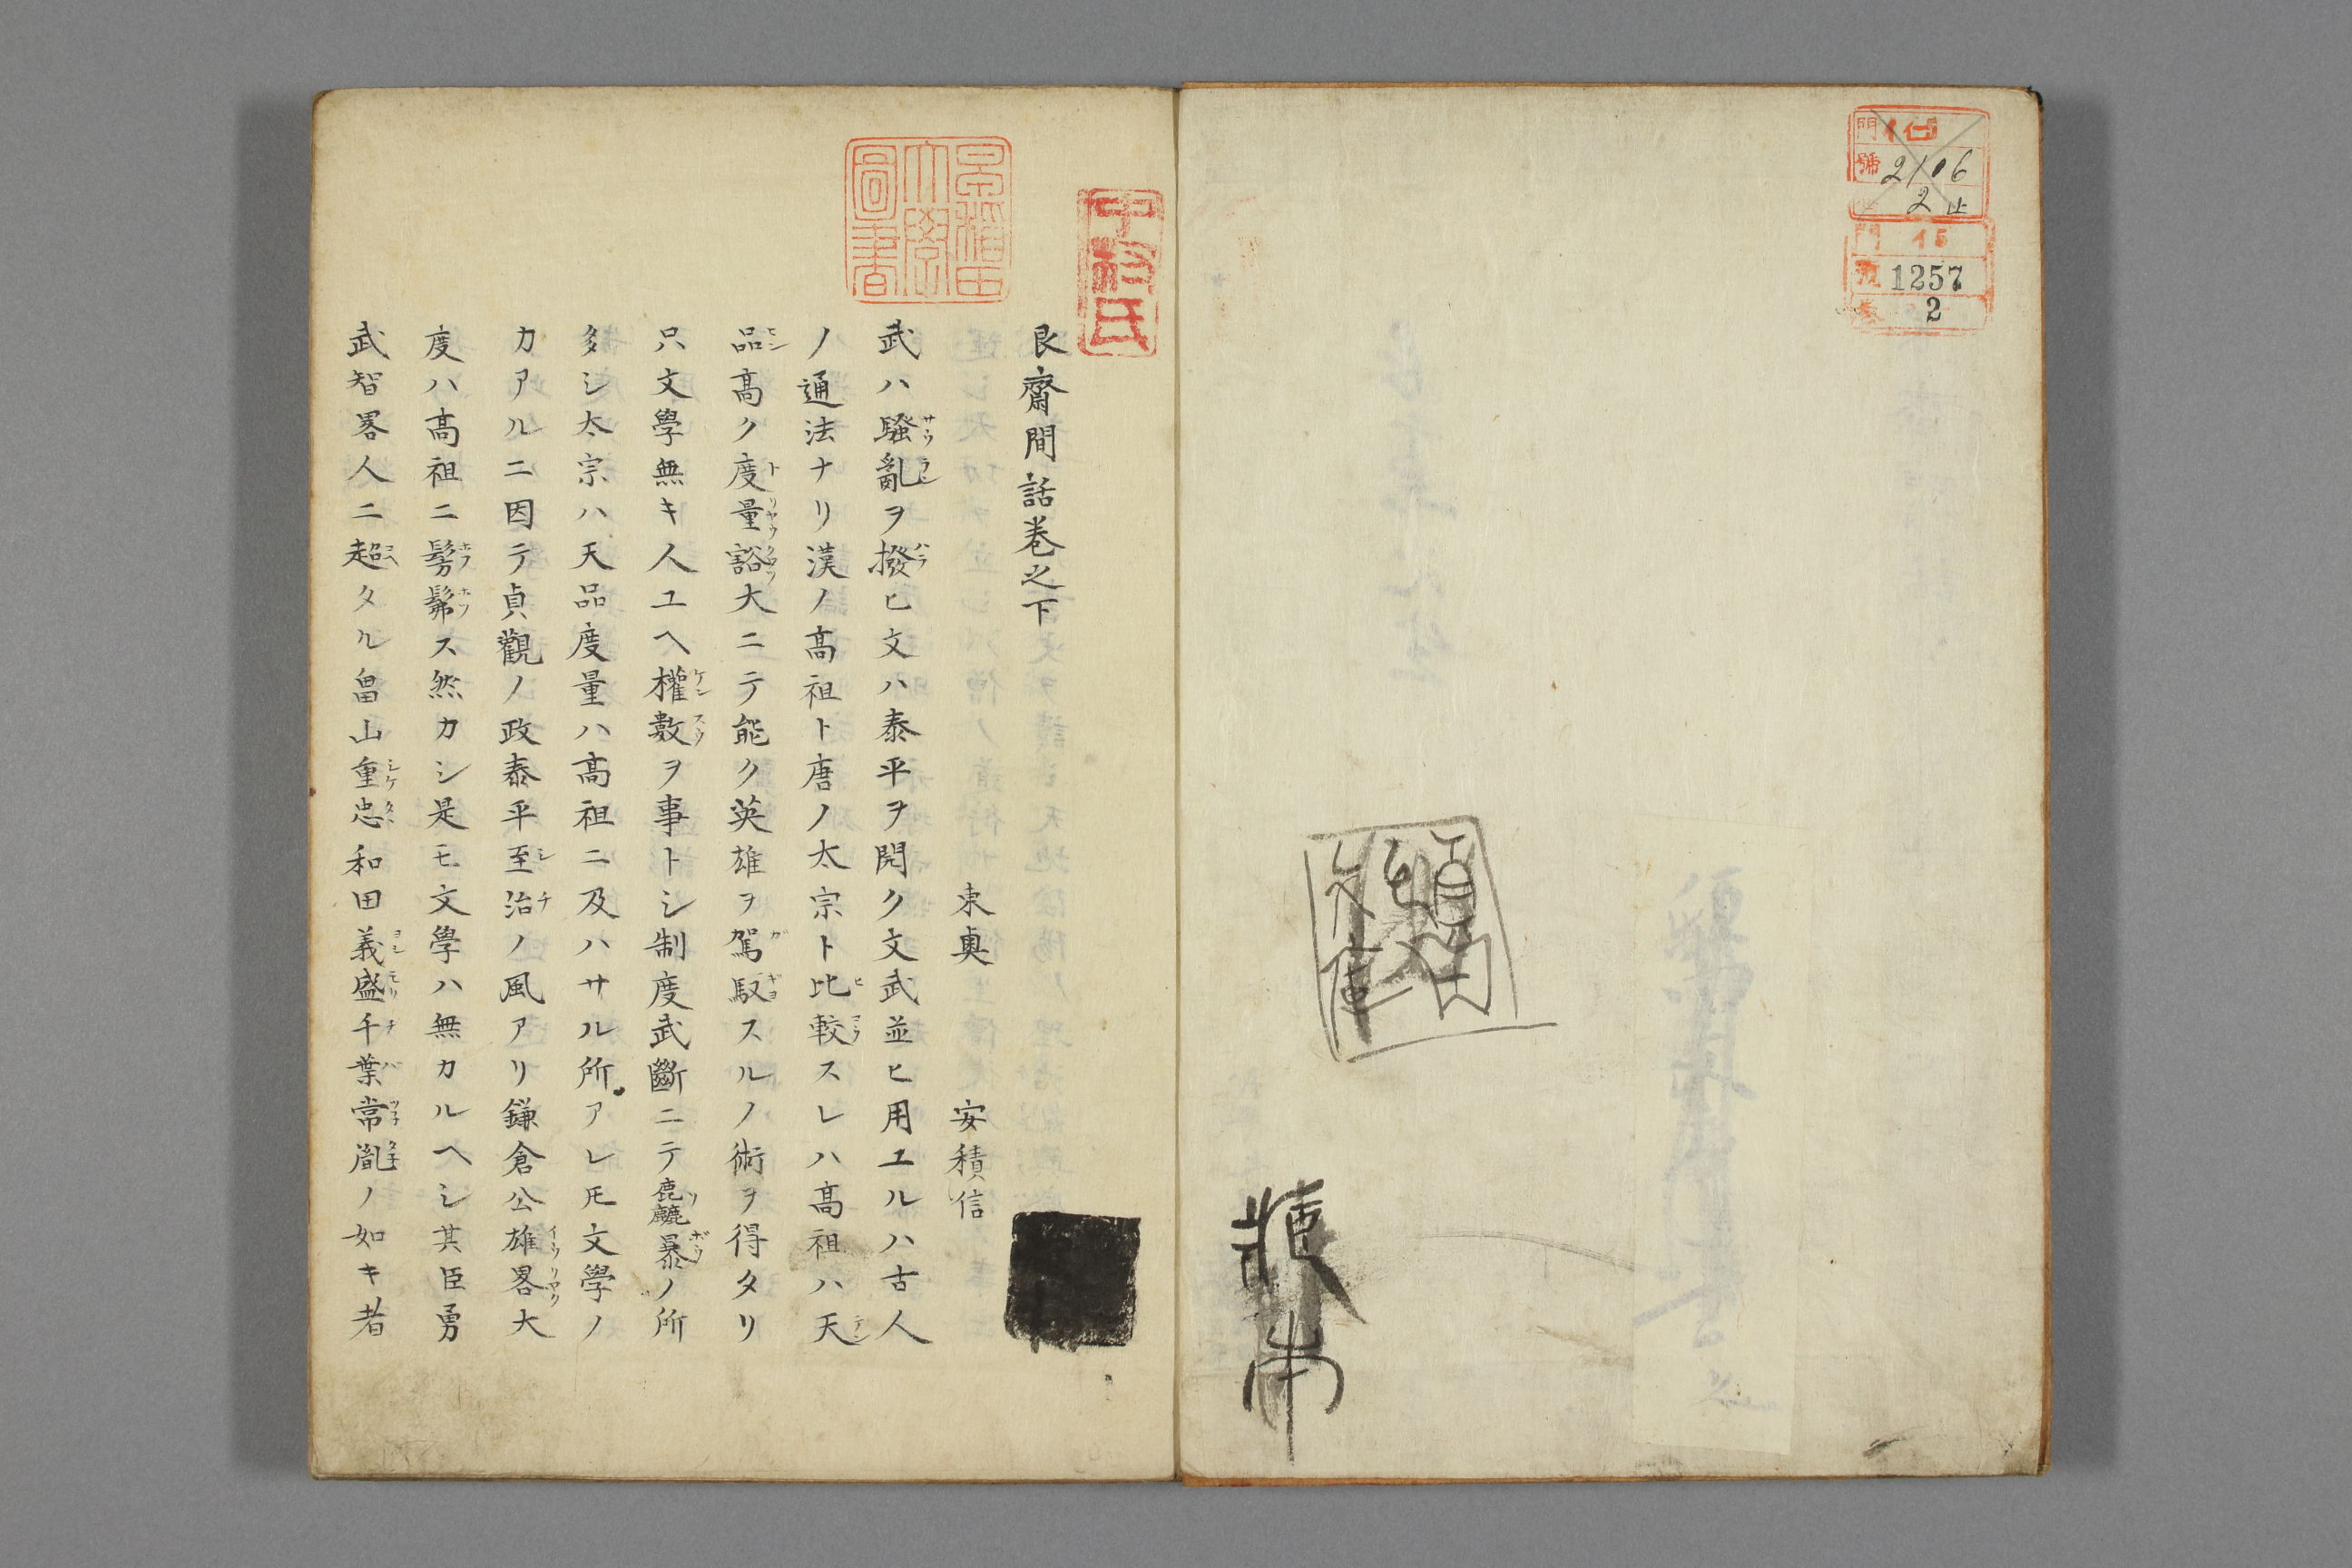 門 イ五
號 2106
2 止
門 イ5
號 1257
卷 2
須田
文庫
早稲田
大學
圖書
艮齋間話巻之下
東奥 安積信
武ハ騷亂ヲ撥ヒ文ハ泰平ヲ開ク文武並ヒ用ユルハ古人
ノ通法ナリ漢ノ髙祖ト唐ノ太宗ト比較スレハ髙祖ハ天
品髙ク度量豁大ニテ能ク英雄ヲ駕馭スルノ術ヲ得タリ
只文學無キ人ユヘ權數ヲ事トシ制度武斷ニテ麁麤暴ノ所
多シ太宗ハ天品度量ハ髙祖ニ及ハサル所アレ𪜈文學ノ
力アルニ因テ貞觀ノ政泰平至治ノ風アリ鎌倉公雄畧大
度ハ髙祖ニ髣髴ス然カシ是モ文學ハ無カルヘシ其臣勇
武智畧人ニ超タル畠山重忠和田義盛千葉常胤ノ如キ者